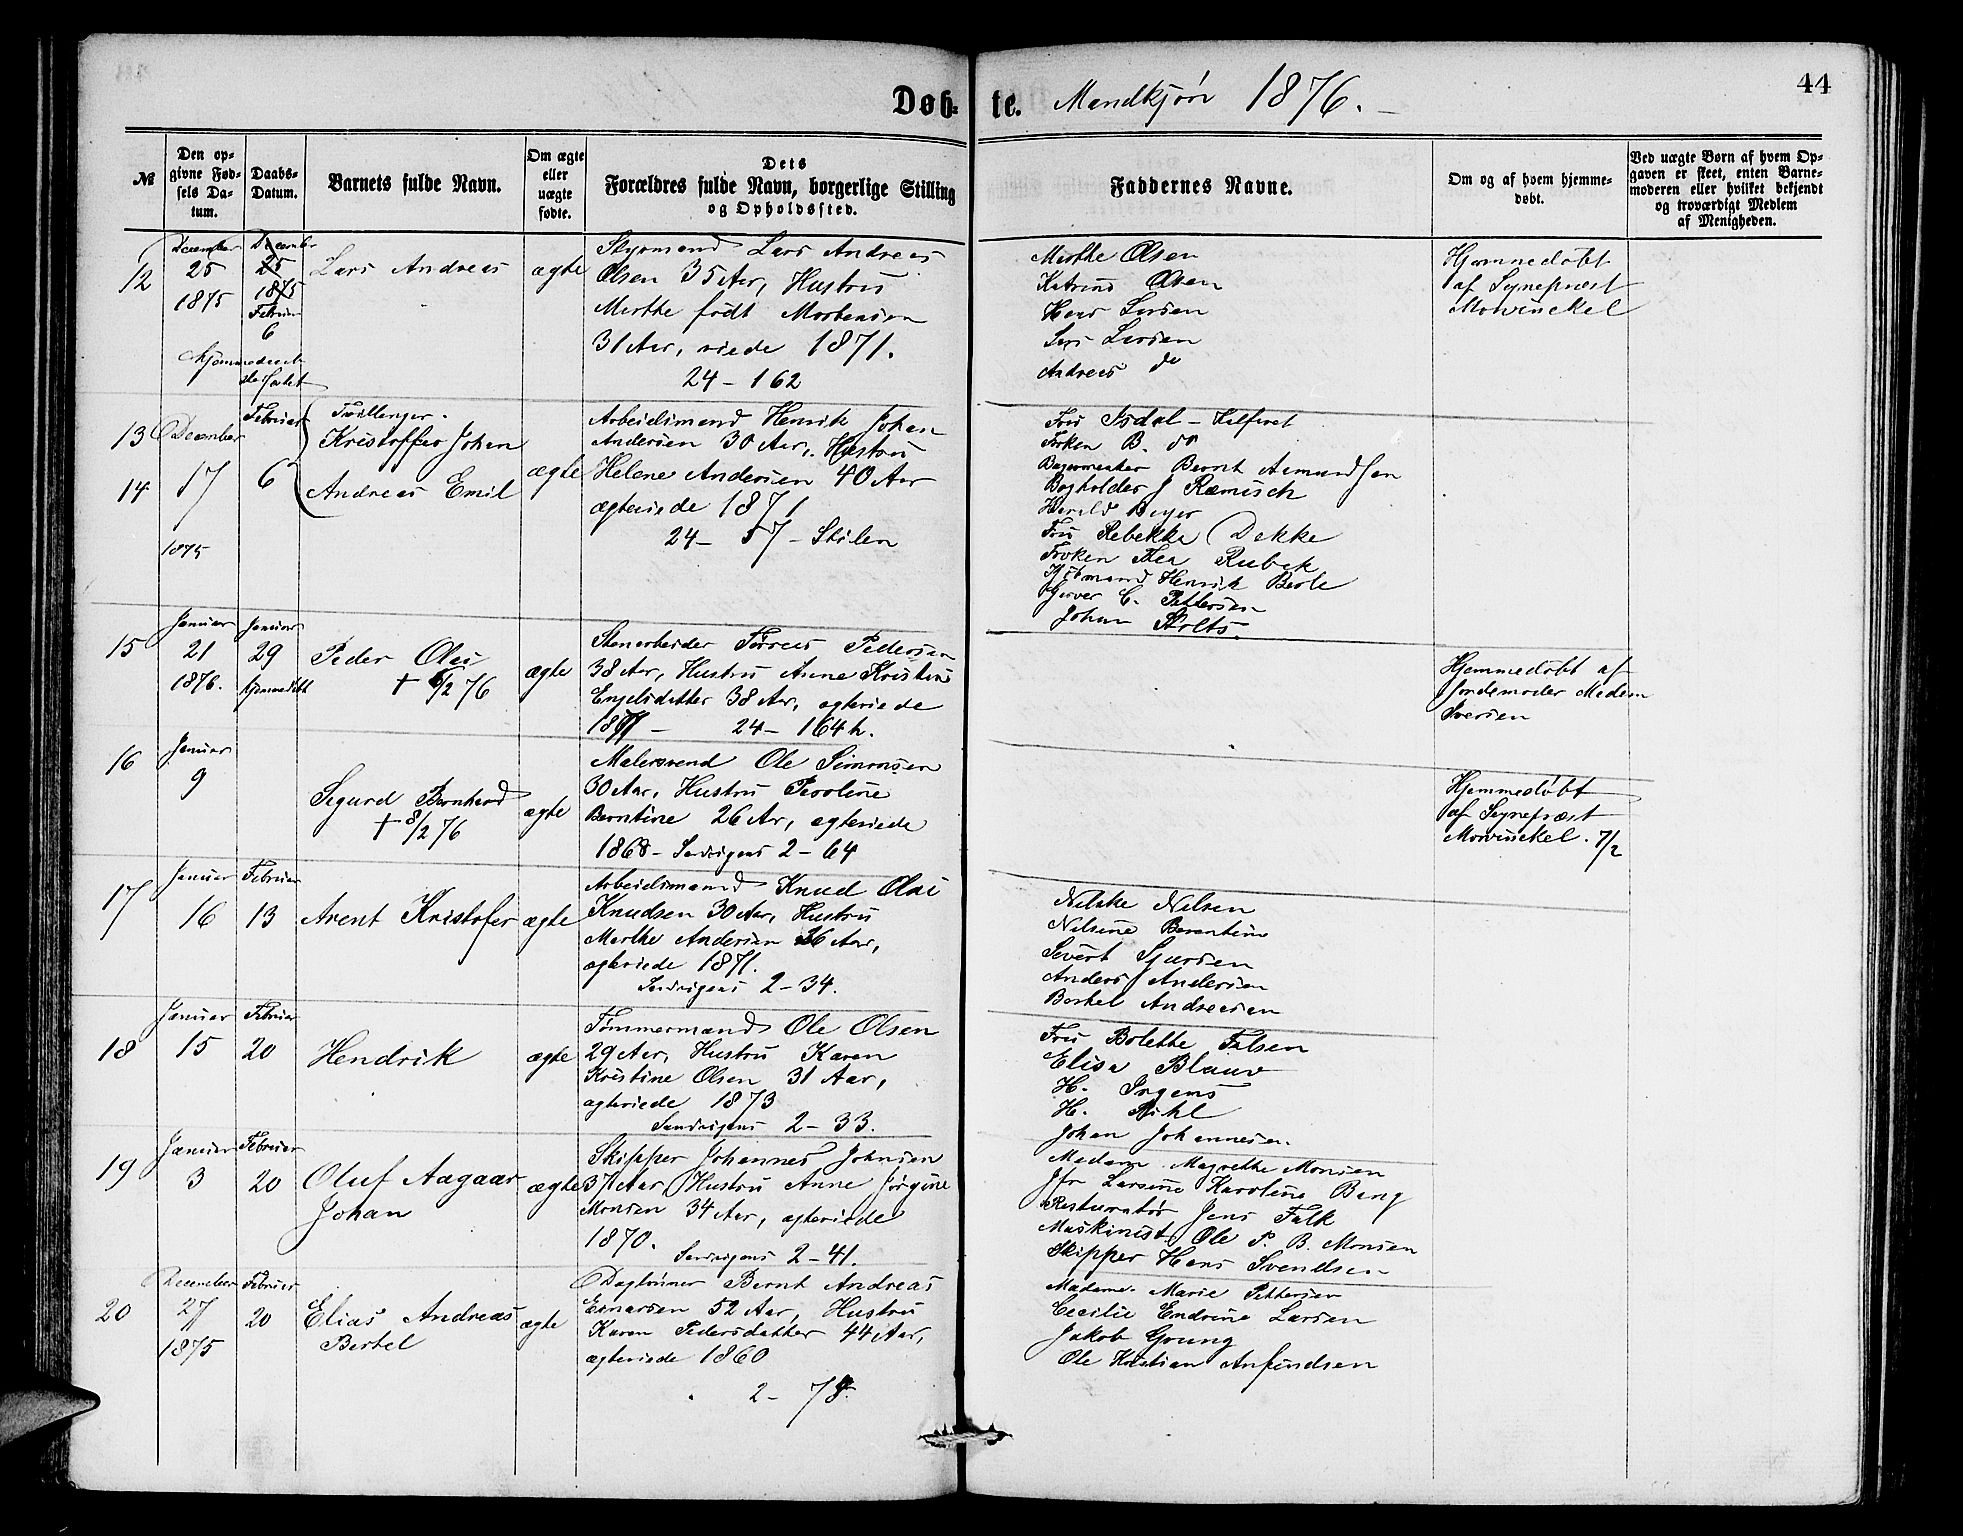 44
Døb-te. Mandkjøn 1876.
№
Den opgivne Fødsels Datum.
Daabs-Datum.
Barnets fulde Navn.
Om ægte eller uægte fødte.
Dets Forældres fulde Navn, borgerlige Stilling og Opholdssted.
Faddernes Navne.
Om og af hvem hjemmedøbt.
Ved uægte Børn af hvem Opgaven er skeet, enten Barnemoderen eller hvilket bekjendt og troværdigt Medlem af Menigheden.
12
December
25
1875
December
25
1875
Februar
6
Lars Andreas
ægte
Styrmand Lars Andreas
Olsen 35 Aar, Hustru
Marthe født Mortensen
31 Aar, viede 1871.
24 - 162
Marthe Olsen
Katrine Olsen
Hans Larsen
Lars Larsen
Andreas do
Hjemmedøbt
af Sognepræst
Mowinckel
13
14
December
17
1875
Februar
6
Tvillinger.
Kristoffer Johan
Andreas Emil
ægte
Arbeidsmand Henrik Johan
Andersen 30 Aar, Hustru
Helene Andersen 40 Aar
ægteviede 1871
24 - 57 - Stølen
Fru Isdal - Kalfaret
Frøken B. do
Bagermester Bernt Asmundsen
Bogholder J Ræmisch
Harald Beyer
Fru Rebekka Dekke
Frøken Thea Rubek
Kjøbmand Henrik Berle
Garver C. Pettersen
Johan Stolts.
15
Januar
21
1876.
Januar
29
hjemmedøbt
Peder Olai
† 6/2 76
ægte
Stenarbeider Torres Pedersen
38 Aar, Hustru Anne Kristine
Engelsdatter 38 Aar, ægteviede
1871 - 24 - 164 h.
Hjemmedøbt af
Jordemoder Madam
Iversen
16
Januar
9
Sigurd Bernhard
† 8/2 76
ægte
Malersvend Ole Simonsen
30 Aar, Hustru Pauline
Berntine 26 Aar, ægteviede
1868 - Sandvigens 2 - 64
Hjemmedøbt
af Sognepræst
Mowinckel. 7/2
17
Januar
16
Februar
13
Arent Kristofer
ægte
Arbeidsmand Knud Olai
Knudsen 30 Aar, Hustru
Marthe Andersen 26 Aar,
ægteviede 1871.
Sandvigens 2 - 34.
Nilske Nilsen
Nilsine Berentine
Sivert Sjursen
Anders Andersen
Bertel Andreasen
18
Januar
15
Februar
20
Hendrik
ægte
Tømmermand Ole Olsen
29 Aar, Hustru Karen
Kristine Olsen 31 Aar,
ægteviede 1873
Sandvigens 2 - 33.
Fru Bolette Falsen
Elisa Blauw
H. Irgens
H. Pihl
Johan Johannesen.
19
Januar
3
Februar
20
Oluf Aagaar
Johan
ægte
Skipper Johannes Johnsen
37 Aar, Hustru Anne Jørgine
Monsen 34 Aar, ægteviede
1870. Sandvigens 2 - 41.
Madam Magrethe Monsen
Jfr Larsine Karoline Bang
Restauratør Jens Falk
Maskinist Ole P. B. Monsen
Skipper Hans Svendsen
20
December
27
1875
Februar
20
Elias Andreas
Bertel
ægte
Daglønner Bernt Andreas
Einarsen 52 Aar, Hustru
Karen Pedersdatter 44 Aar,
ægteviede 1860
2 -
Madame Marie Pettersen
Cecilie Endrine Larsen
Jakob Grung
Ole Kristian Anfindsen